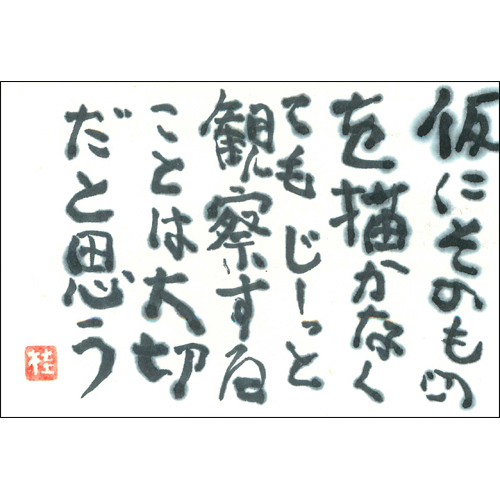 仮にそのもの
を描かなく
てもじーっと
観察する
ことは大切
だと思う
桂